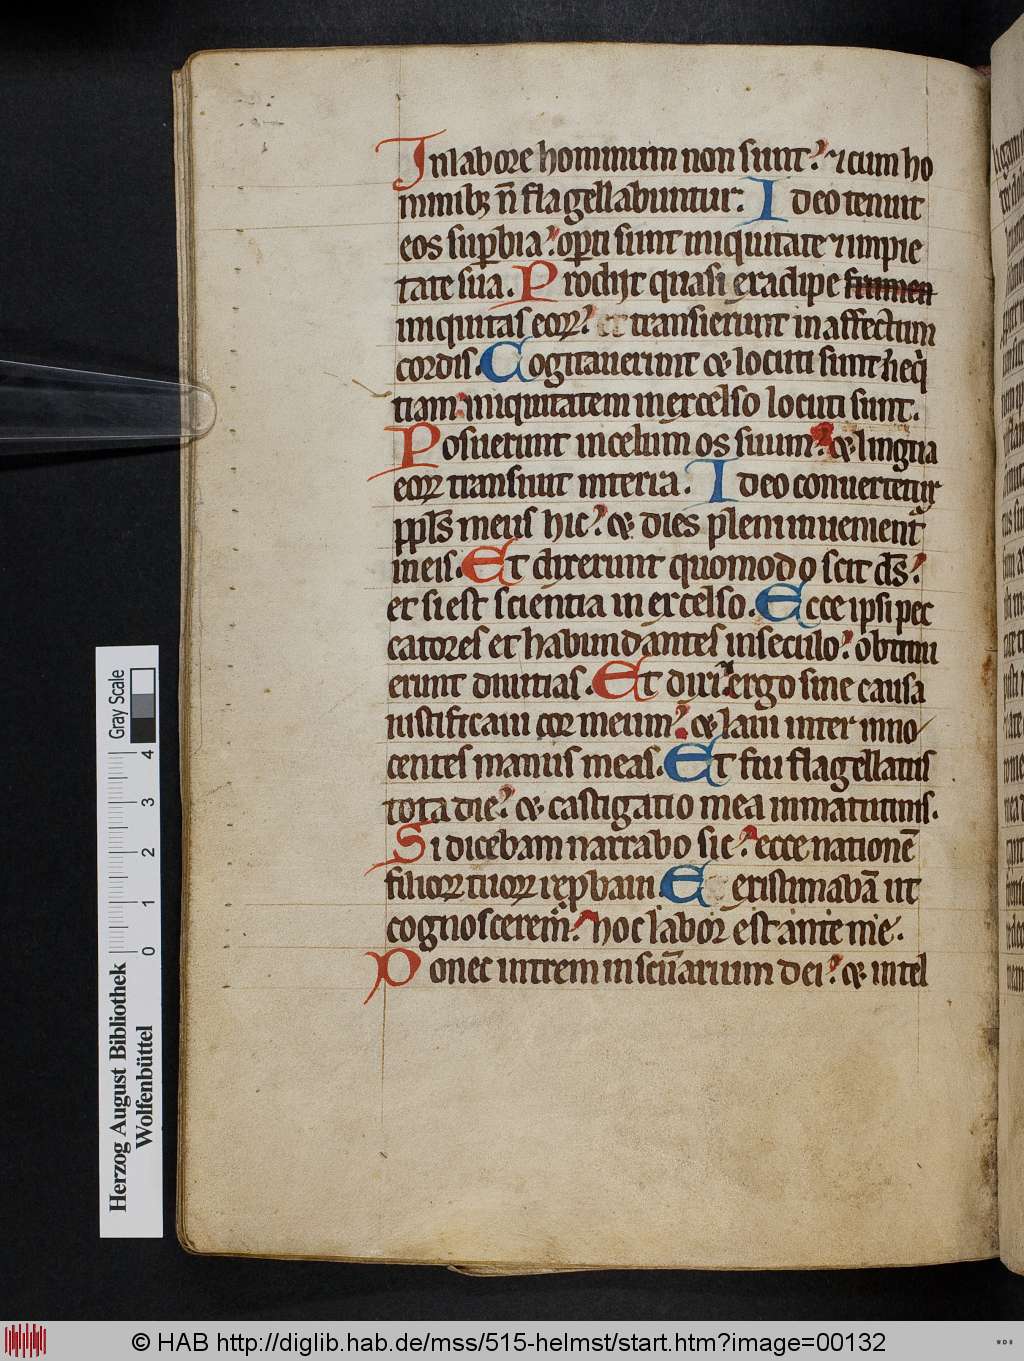 In labore hominum non sunt. ⁊ cum ho
minibꝫ n̄ flagellabuntur. Ideo tenuit
eos suꝑbia. oꝑti sunt iniquitate ⁊ impie
tate sua. Prodijt quasi ex adipe frumen
iniquitas eoꝝ. et transierunt in affectum
cordis. Cogitauerunt et locuti sunt neq̇
tiam iniquitatem in excelso locuti sunt.
Posuerunt in celum os suum. et lingua
eoꝝ transiuit in terra. Ideo conuertetur
ppl̄s meus hic. et dies pleni inuenient᷑
in eis. Et dixerunt quomodo scit ds̄.
et si est scientia in excelso. Ecce ipsi pec
catores et habundantes in seculo. obtinu
erunt diuitias. Et dixi. ergo sine causa
iustificaui cor meum. et laui inter inno
centes manus meas. Et fui flagellatus
tota die. et castigatio mea in matutinis.
Si dicebam narrabo sic. ecce nationē
filioꝝ tuoꝝ reꝓbaui. E existimabā ut
cognoscerem. hoc labor est ante me.
Donec intrem in scūarium dei. et intel
Gray Scale
4 3 2 1 0
Herzog August Bibliothek
Wolfenbüttel
© HAB http://diglib.hab.de/mss/515-helmst/start.htm?image=00132